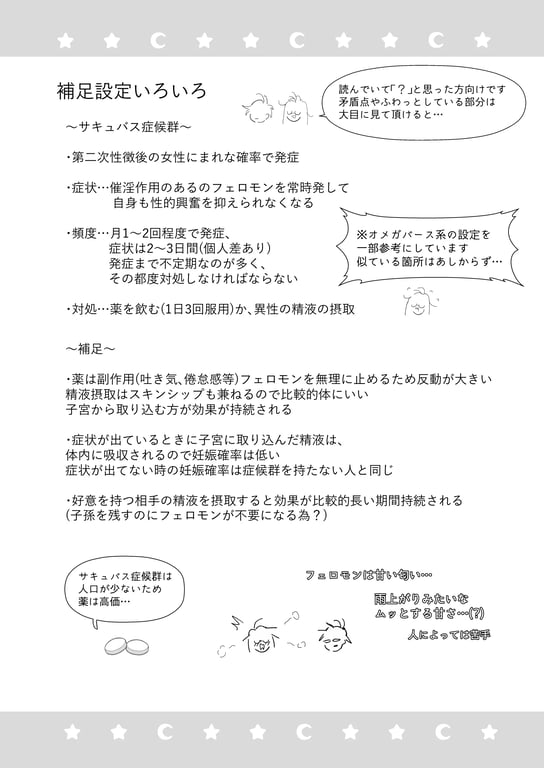 補足設定いろいろ
読んでいて｢？｣と思った方向けです
矛盾点やふわっとしている部分は
大目に見て頂けると…
～サキュバス症候群～
・第二次性徴後の女性にまれな確率で発症
・症状…催淫作用のあるのフェロモンを常時発して
自身も性的興奮を抑えられなくなる
・頻度…月1～2回程度で発症、
症状は2～3日間(個人差あり)
発症まで不定期なのが多く、
その都度対処しなければならない
※オメガバース系の設定を
一部参考にしています
似ている箇所はあしからず…
・対処…薬を飲む(1日3回服用)か、異性の精液の摂取
～補足～
・薬は副作用(吐き気、倦怠感等)フェロモンを無理に止めるため反動が大きい
精液摂取はスキンシップも兼ねるので比較的体にいい
子宮から取り込む方が効果が持続される
・症状が出ているときに子宮に取り込んだ精液は、
体内に吸収されるので妊娠確率は低い
症状が出てない時の妊娠確率は症候群を持たない人と同じ
・好意を持つ相手の精液を摂取すると効果が比較的長い期間持続される
(子孫を残すのにフェロモンが不要になる為？)
サキュバス症候群は
人口が少ないため
薬は高価…
フェロモンは甘い匂い…
雨上がりみたいな
ムッとする甘さ…(?)
人によっては苦手